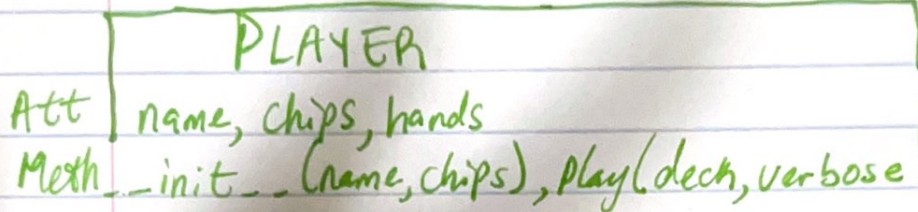 PLAYER
Att name, chips, hands
Meth __init__(name, chips), play(deck, verbose